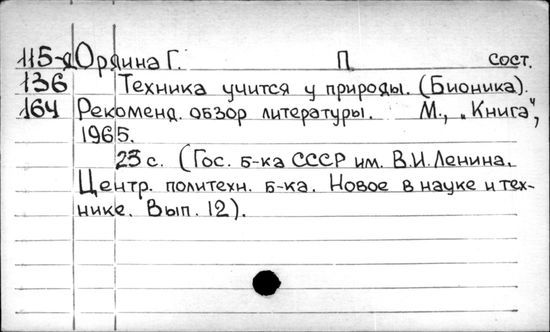 115-д Орлина Г. П сост.
136 Техника учится у природы. (Бионика).
164 Рекоменд. обзор литературы. М., „Книга",
1965.
23 с. (Гос. б-ка СССР им. В.И. Ленина.
Центр. политехн. б-ка. Новое в науке и тех-
нике. Вып. 12).